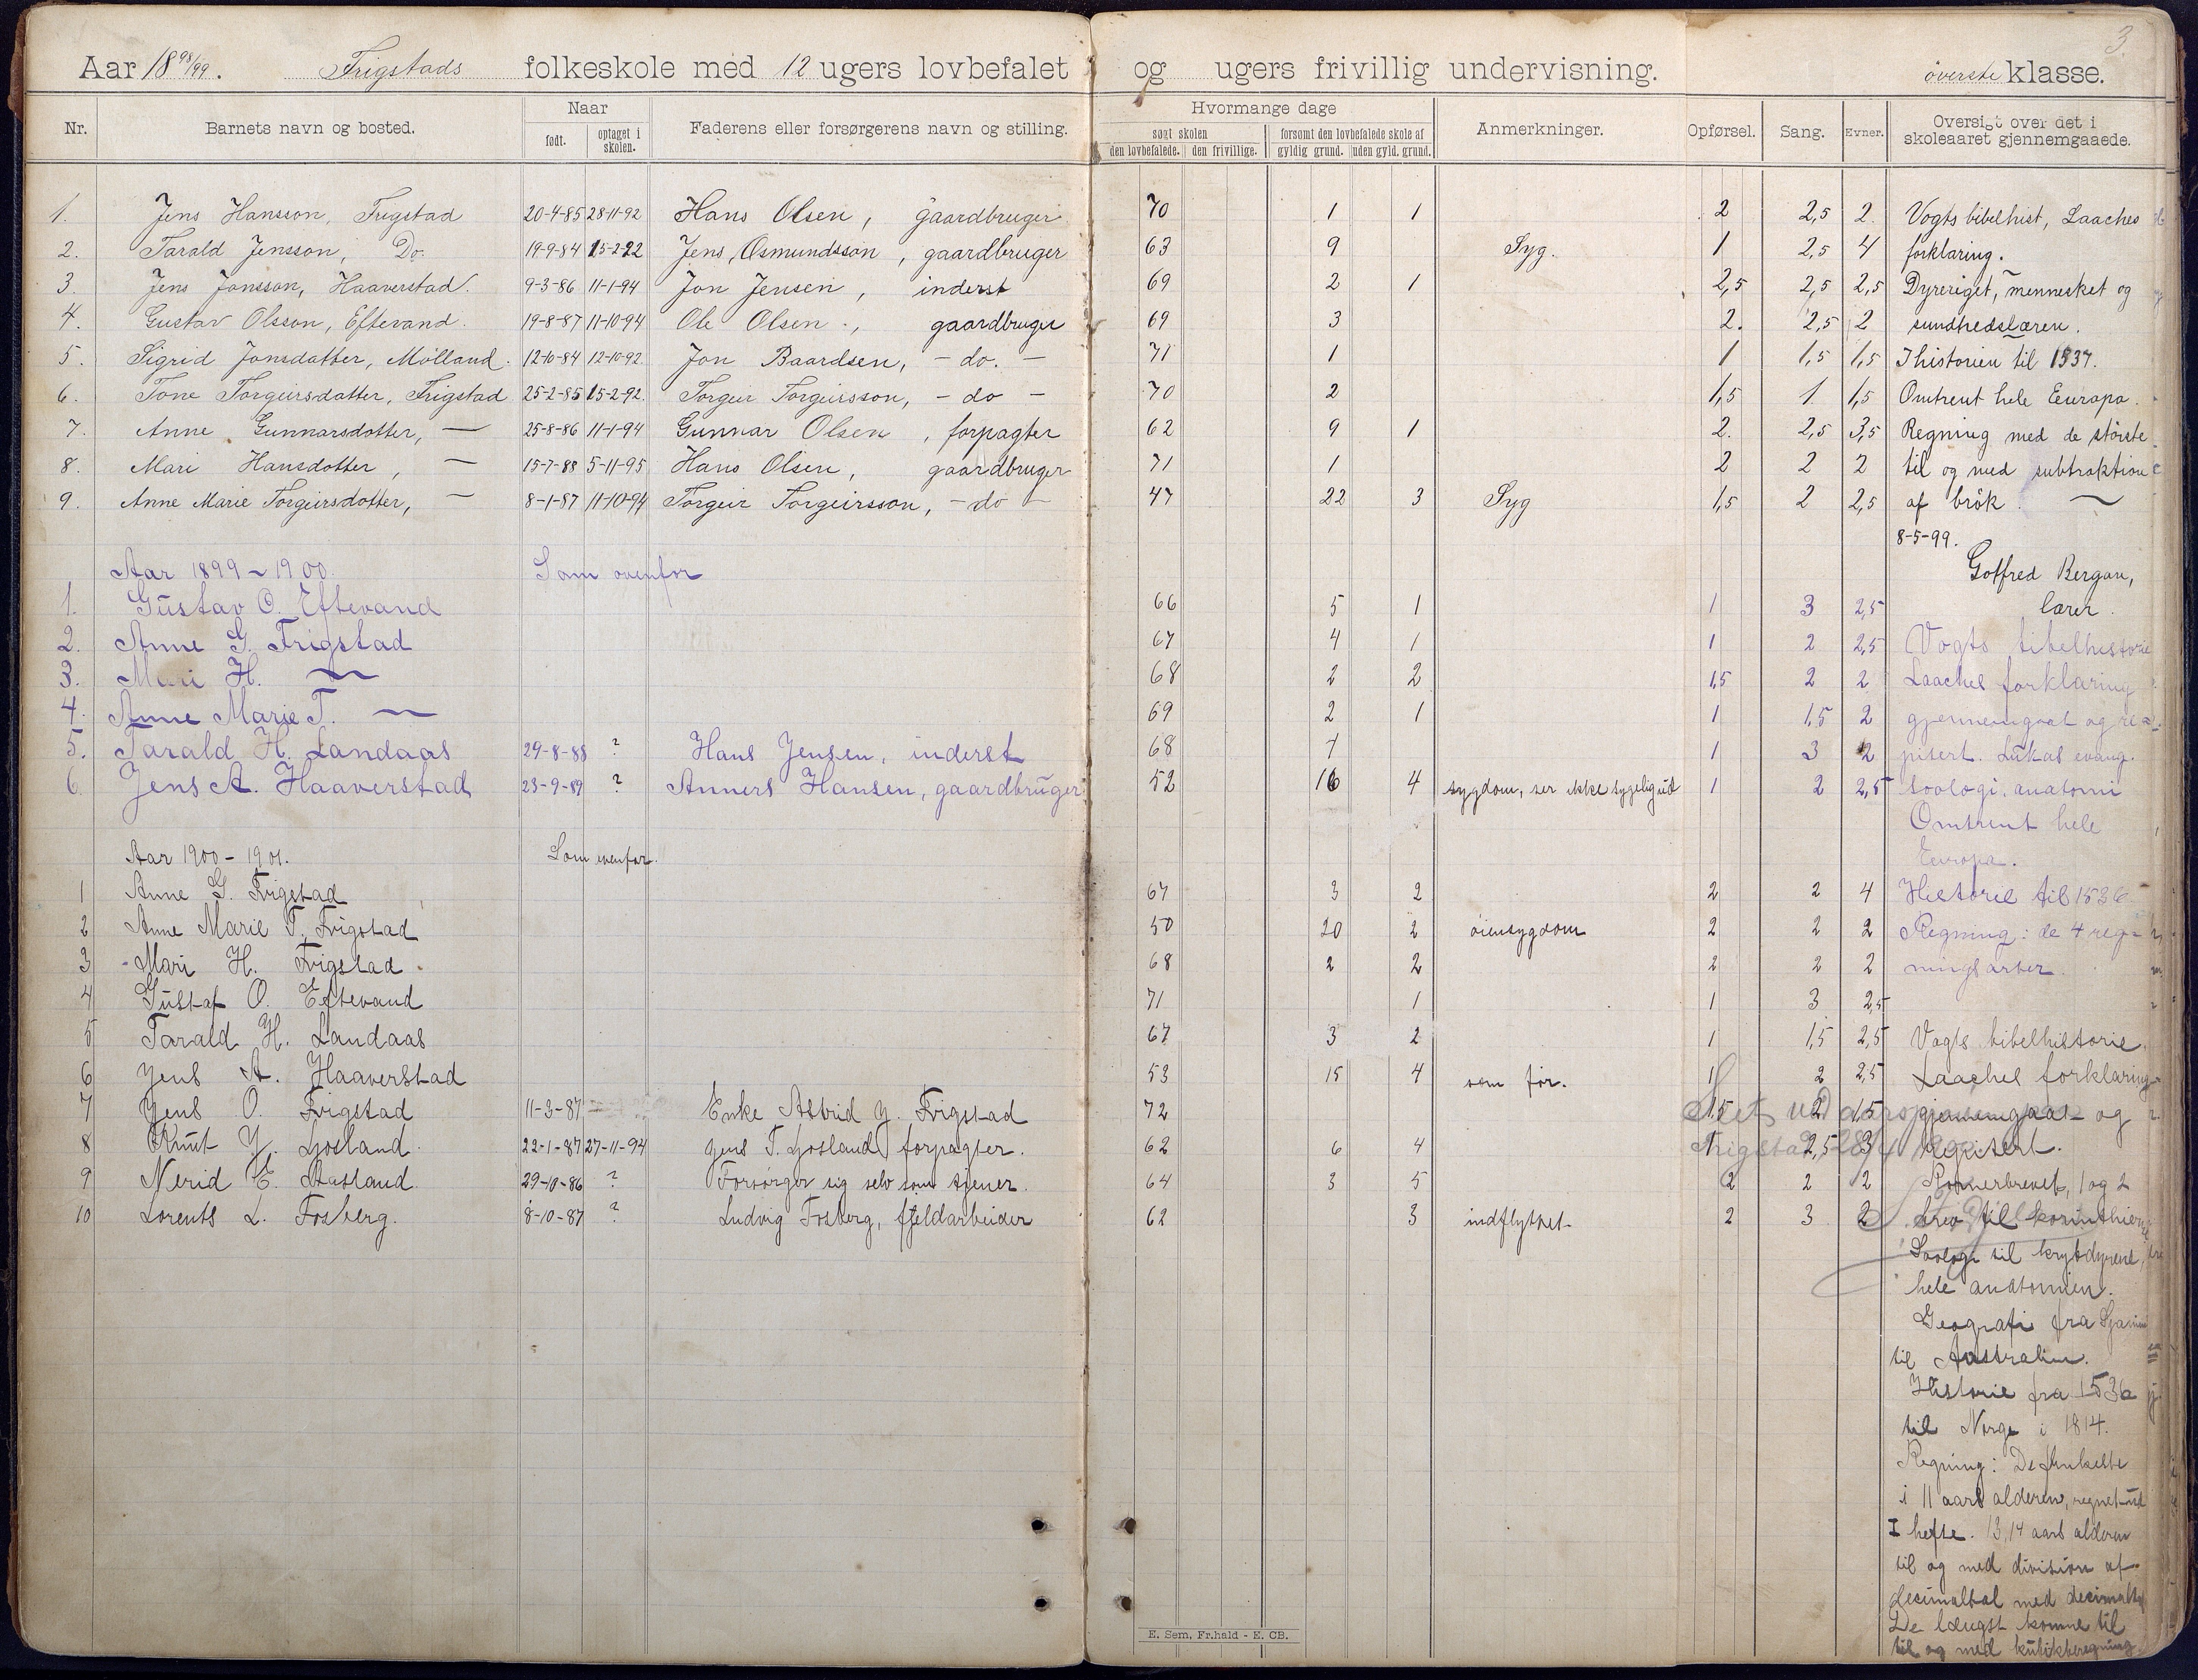 3.
Aar 18 98/99. Frigstads folkeskole med 12 ugers lovbefalet og ugers frivillig undervisning. överste klasse.
Nr. Barnets navn og bosted. Naar Faderens eller forsørgerens navn og stilling. Hvormange dage Anmerkninger. Opførsel. Sang. Evner. Oversigt over det i skoleaaret gjennemgaaede.
født. optaget i skolen. søgt skolen forsømt den lovbefalede skole af
den lovbefalede. den frivillige. gyldig grund. uden gyld. grund.
1. Jens Hansson, Frigstad 20-4-85 28-11-92 Hans Olsen, gaardbruger 70 1 1 2 2,5 2 Vogts bibelhist, Laaches
2. Tarald Jensson, Do. 19-9-84 15-2-92 Jens Osmundsson, gaardbruger 63 9 Syg. 1 2,5 4 forklaring.
3. Jens Jonsson, Haaverstad. 9-3-86 11-1-94 Jon Jensen, inderst 69 2 1 2,5 2,5 2,5 Dyreriget, mennesket og
4. Gustav Olsson, Eftevand. 19-8-87 11-10-94 Ole Olsen, gaardbruger 69 3 2. 2,5 2 sundhedslæren.
5. Sigrid Jonsdatter, Mölland. 12-10-84 12-10-92 Jon Baardsen, - do. - 71 1 1 1,5 1,5 I historien til 1537.
6. Tone Torgeirsdatter, Frigstad 25-2-85 15-2-92. Torgeir Torgeirsson, - do - 70 2 1,5 1 1,5 Omtrent hele Eeuropa.
7. Anne Gunnarsdotter, — 25-8-86 11-1-94 Gunnar Olsen, forpagter 62 9 1 2. 2,5 3,5 Regning med de störste
8. Mari Hansdotter, — 15-7-88 5-11-95 Hans Olsen, gaardbruger 71 1 2 2 2 til og med subtraktion
9. Anne Marie Torgeirsdotter, — 8-1-87 11-10-94 Torgeir Torgeirsson, - do - 47 22 3 Syg 1,5 2 2,5 af brök.
8-5-99.
Aar 1899-1900. Som ovenfor Gotfred Bergan,
1. Gustav O. Eftevand 66 5 1 1 3 2,5 lærer.
2. Anne G. Frigstad 67 4 1 1 2 2,5 Vogts bibelhistorie
3. Mari H. — 68 2 2 1,5 2 2 Laaches forklaring
4. Anne Marie T. — 69 2 1 1 1,5 2 gjennemgaat og re=
5. Tarald H. Landaas 29-8-88 ? Hans Jensen, inderst 68 1 3 2 pitert. Lukas evang.
6. Jens A. Haaverstad 23-9-89 ? Anners Hansen, gaardbruger 52 16 4 sygdom, ser ikke sygelig ud 1 2 2,5 soologi, anatomi
Omtrent hele
Aar 1900-1901. Som ovenfor. Europa.
1 Anne G. Frigstad 67 3 2 2 2 4 Historie til 1536
2 Anne Marie T. Frigstad 50 20 2 öiensygdom 2 2 2 Regning: de 4 reg=
3 Mari H. Frigstad 68 2 2 2 2 2 ningsarter.
4 Gustaf O. Eftevand 71 1 1 3 2,5
5 Tarald H. Landaas 67 3 2 1 1,5 2,5 Vogts bibelhistorie,
6 Jens A. Haaverstad 53 15 4 som för. 1 2 2,5 Laaches forklaring
7 Jens O. Frigstad 11-3-87 Enke Astrid J. Frigstad 72 1,5 2 1,5 gjennemgaat og
8 Knut J. Ljosland 22-1-87 27-11-94 Jens T. Ljosland, forpagter. 62 6 4 1 2,5 3 repitert.
9 Nerid E. Aasland 29-10-86 ? Forsörger sig selv som tjener. 64 3 5 2 2 2 Romerbrevet, 1 og 2
10 Lorents L. Fosberg. 8-10-87 ? Ludvig Fosberg, fjeldarbeider 62 3 indflyttet 2 3 2 brev til korinthierne
Soologi til krybdyrene,
hele anatomien.
Geografi fra Spanien
til Australien.
Historie fra 1536
til Norge i 1814.
Regning: De
i 11 aars alderen, regnet ud
I hefte. 13, 14 aars alderen
til og med division af
decimaltal med decimaltal
De længst komne til
til og med kubikberegning.
E. Sem, Fr.hald - E. CB.